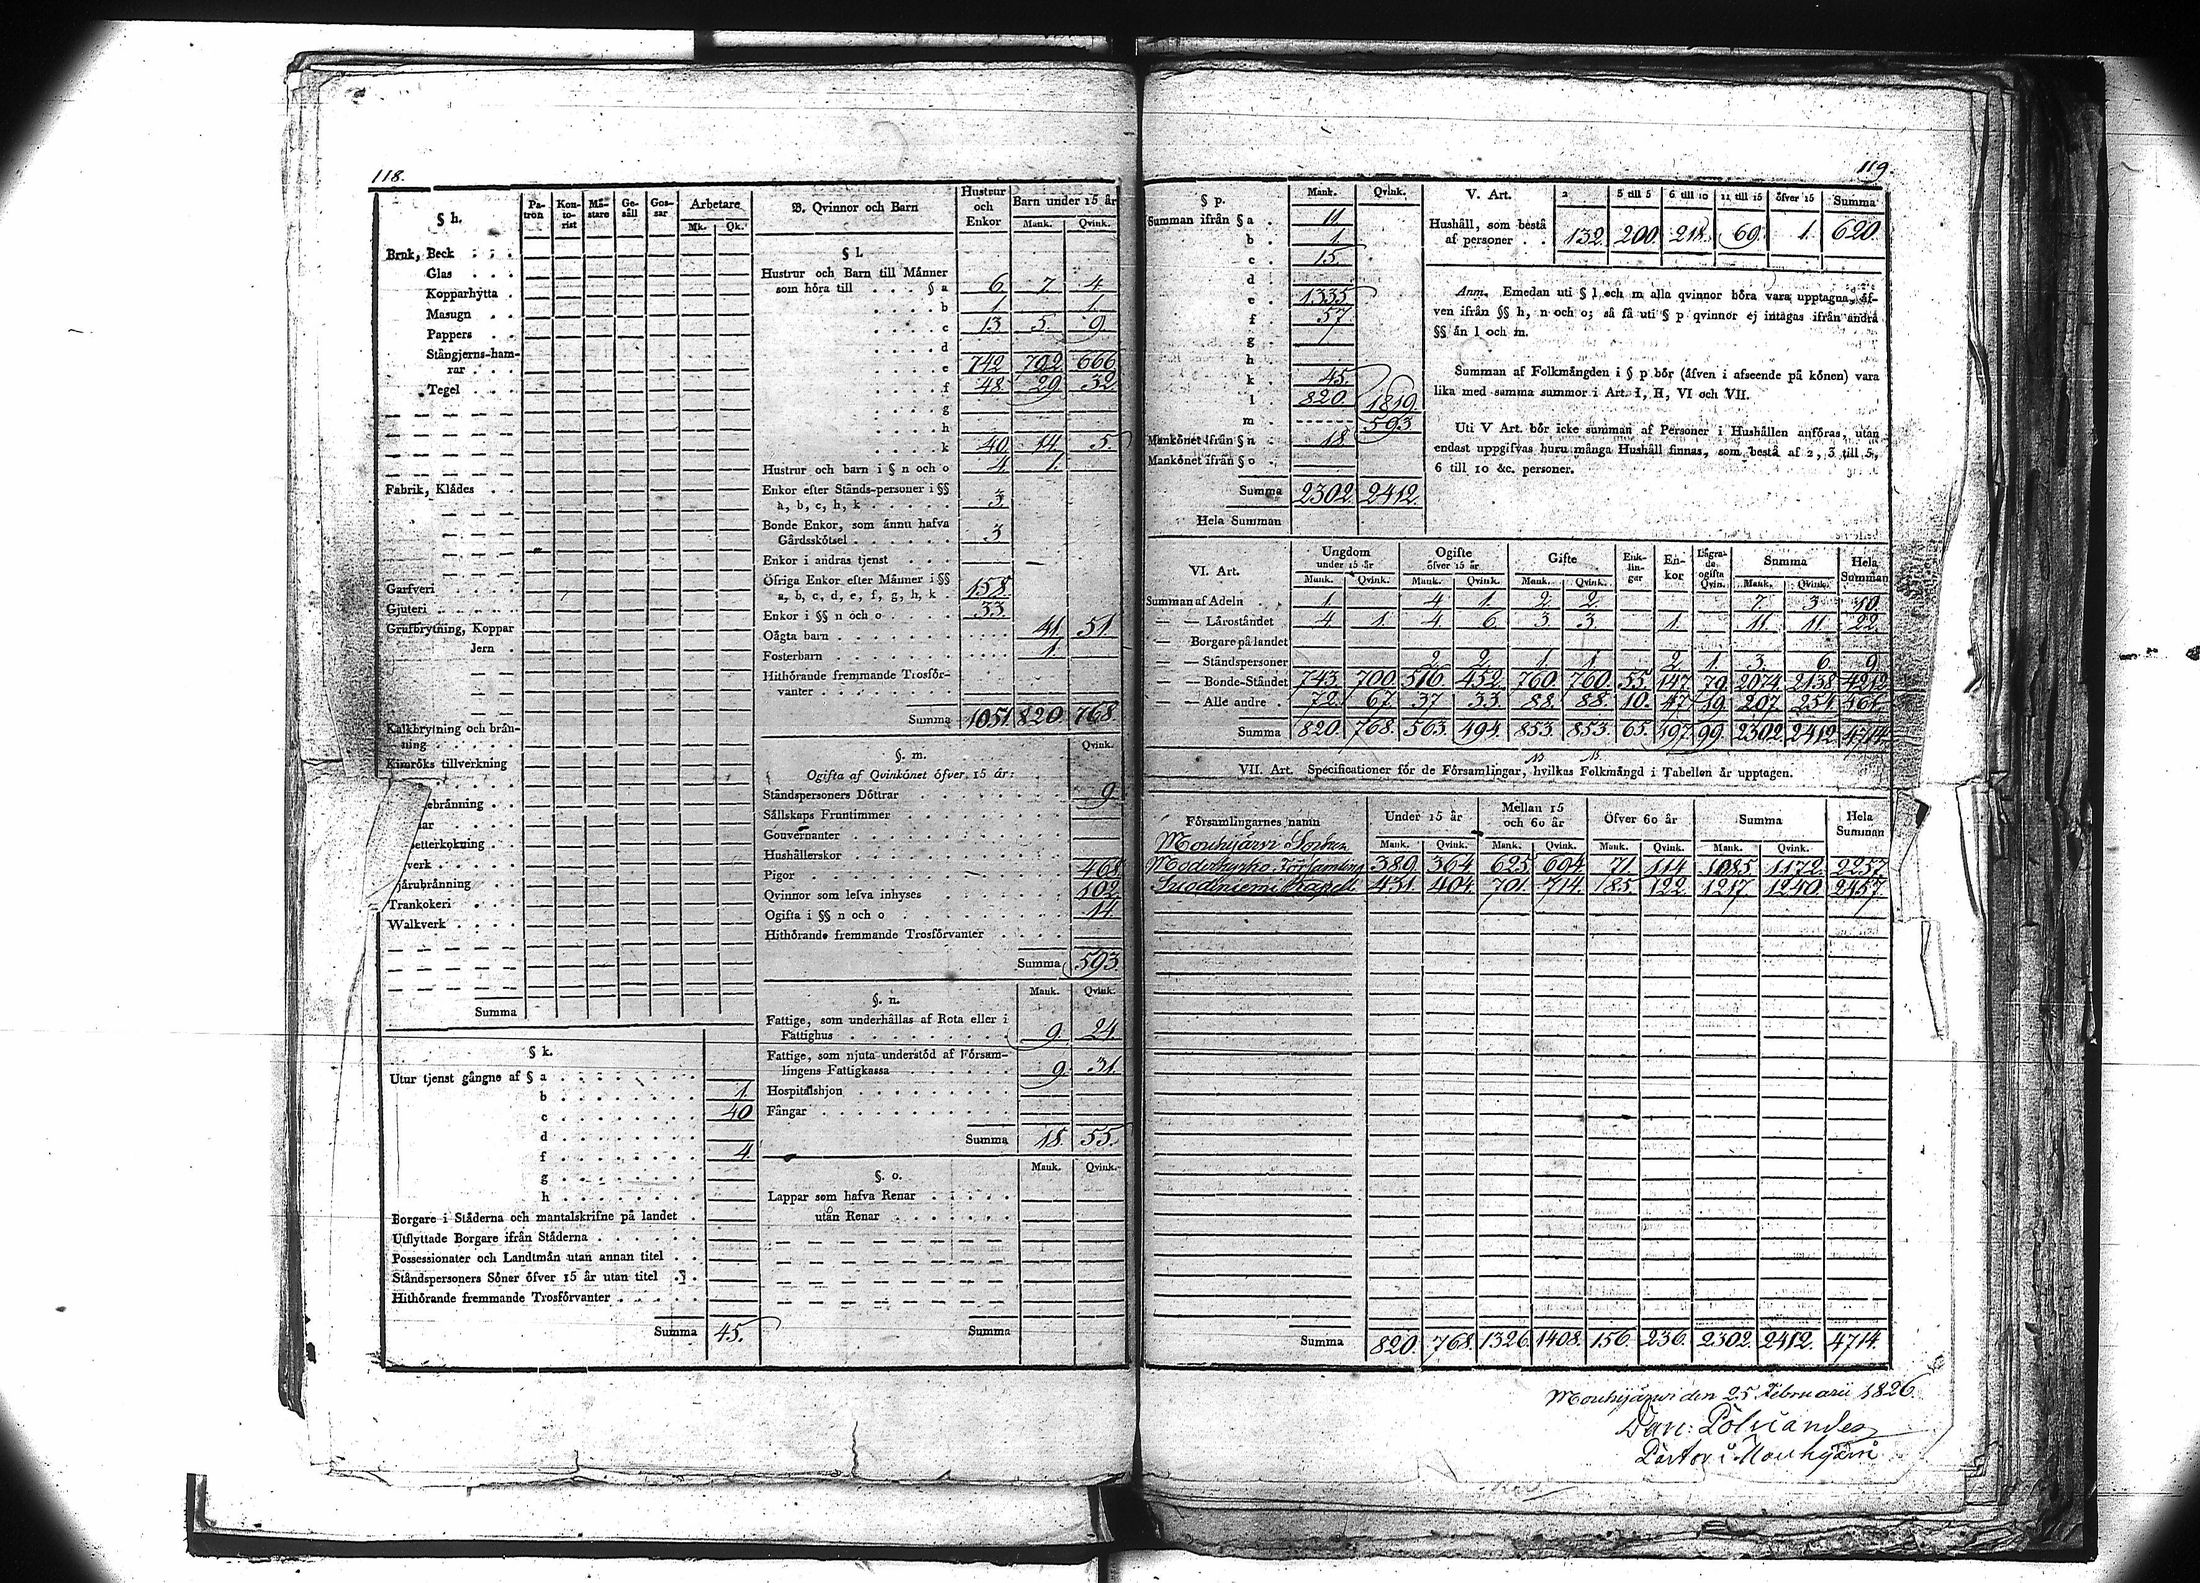 118.
§ h. Pa-tron Kon-to-rist Må-stare Ge-såll Gos-sar Arbetare
Mk. Qk.
Bruk, Beck
Glas
Kopparhytta
Masugn
Pappers
Stångjerns-ham-
rar
Tegel
Fabrik, Klådes
Garfveri
Gjuteri
Grufbrytning, Koppar
Jern
Kalkbrytning och brån-
ning
Kimröks tillverkning
Trankokeri
Walkverk
Summa
§ k.
Utur tjenst gångne af § a
b 1.
c 40
d
f 4.
g
h
Borgare i Ståderna och mantalskrifne på landet
Utflyttade Borgare ifrån Ståderna
Possessionater och Landtmån utan annan titel
Ståndspersoners Söner öfver 15 år utan titel
Hithörande fremmande Trosförvanter
Summa 45.
B. Qvinnor och Barn Hustrur och Enkor Barn under 15 år
Mank. Qvink.
§ l.
Hustrur och Barn till Månner
som höra till § a 6 7. 4
b 1 1.
c 13 5. 9.
d
e 742 792 666
f 48 29 32
g
h
k 40 14. 5.
Hustrur och barn i § n och o 4. 1.
Enkor efter Stånds-personer i §§
a, b, c, h, k 3.
Bonde Enkor, som ånnu hafva
Gårdsskötsel 3
Enkor i andras tjenst
Öfriga Enkor efter Månner i §§
a, b, c, d, e, f, g, h, k 158.
Enkor i §§ n och o 33.
Oågta barn 41. 51.
Fosterbarn 1.
Hithörande fremmande Trosför-
vanter
Summa 1051 820 768.
§. m. Qvink.
Ogifta af Qvinkönet öfver 15 år:
Ståndspersoners Döttrar 9
Sållskaps Fruntimmer
Gouvernanter
Hushållerskor
Pigor 468
Qvinnor som lefva inhyses 102.
Ogifta i §§ n och o 14.
Hithörande fremmande Trosförvanter
Summa 593.
§. n. Mank. Qvink.
Fattige, som underhållas af Rota eller i
Fattighus 9. 24.
Fattige, som njuta understöd af Försam-
lingens Fattigkassa 9. 31.
Hospitalshjon
Fångar
Summa 18. 55.
§. o. Mank. Qvink.
Lappar som hafva Renar
utan Renar
Summa
119.
§ p. Mank. Qvink.
Summan ifrån § a 11
b 1.
c 15.
d
e 1335
f 57
g
h
k 45.
l 820. 1819.
m 593
Mankönet ifrån § n 18
Mankönet ifrån § o
Summa 2302 2412.
Hela Summan
V. Art. 2 3 till 5 6 till 10 11 till 15 öfver 15 Summa
Hushåll, som bestå
af personer 132. 200. 218. 69. 1. 620.
Anm. Emedan uti § l och m alla qvinnor böra vara upptagna, åf-
ven ifrån §§ h, n och o; så få uti § p qvinnor ej intagas ifrån andra
§§ ån l och m.
Summan af Folkmångden i § p bör (åfven i afseende på könen) vara
lika med samma summor i Art. I, II, VI och VII.
Uti V Art. bör icke summan af Personer i Hushållen anföras, utan
endast uppgifvas huru många Hushåll finnas, som bestå af 2, 3 till 5,
6 till 10 &c. personer.
VI. Art. Ungdom under 15 år Ogifte öfver 15 år Gifte Enk-lin-gar En-kor Lågra-de ogifta Qvin. Summa Hela Summan
Mank. Qvink. Mank. Qvink. Mank. Qvink. Mank. Qvink.
Summan af Adeln 1. 4 1. 2 2. 7. 3 10.
— — Låroståndet 4 1. 4. 6 3 3. 1. 11. 11 22.
— Borgare på landet
— — Ståndspersoner 2 2. 1. 1. 2. 1. 3. 6. 9
— — Bonde-Ståndet 743. 700. 516 452. 760. 760. 55. 147. 79. 2074. 2138 4212
— — Alle andre 72. 67. 37. 33. 88. 88. 10. 47. 19. 207. 254. 461.
Summa 820. 768. 563. 494. 853. 853. 65. 197. 99. 2302. 2412 4714.
VII. Art. Specificationer för de Församlingar, hvilkas Folkmångd i Tabellen år upptagen.
Församlingarnes namn Under 15 år Mellan 15 och 60 år Öfver 60 år Summa Hela Summan
Mank. Qvink. Mank. Qvink. Mank. Qvink. Mank. Qvink.
Mouhijärvi Sockn
Moderkyrko Församling 389. 364. 625. 694. 71. 114. 1085. 1172. 2257.
Suodeniemi Kapell 431. 404. 701. 714. 85. 122. 1217. 1240. 2457.
Summa 820. 768. 1326. 1408. 156. 236. 2302. 2412. 4714.
Mouhijärvi den 25 Februarii 1826.
Dan: Polviander
Pastor i Mouhijärvi